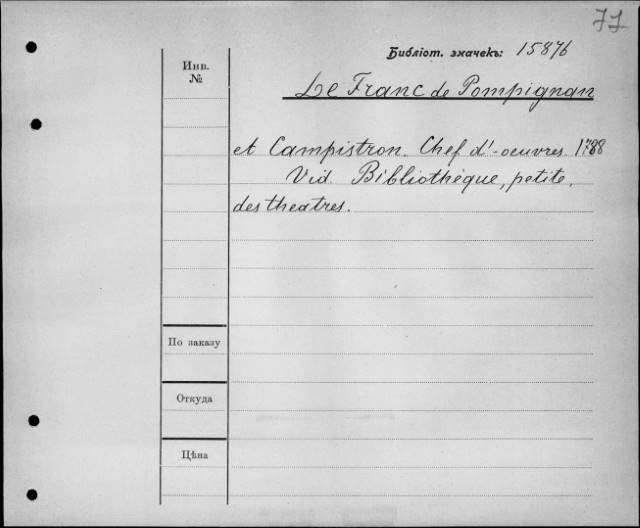 Библіот. значекъ: 15876
Инв. №
Le Franc de Pompignan
et Campistron. Chef d'-oeuvres. 1788
Vid. Bibliothèque, petite,
des theatres.
По заказу
Откуда
Цѣна